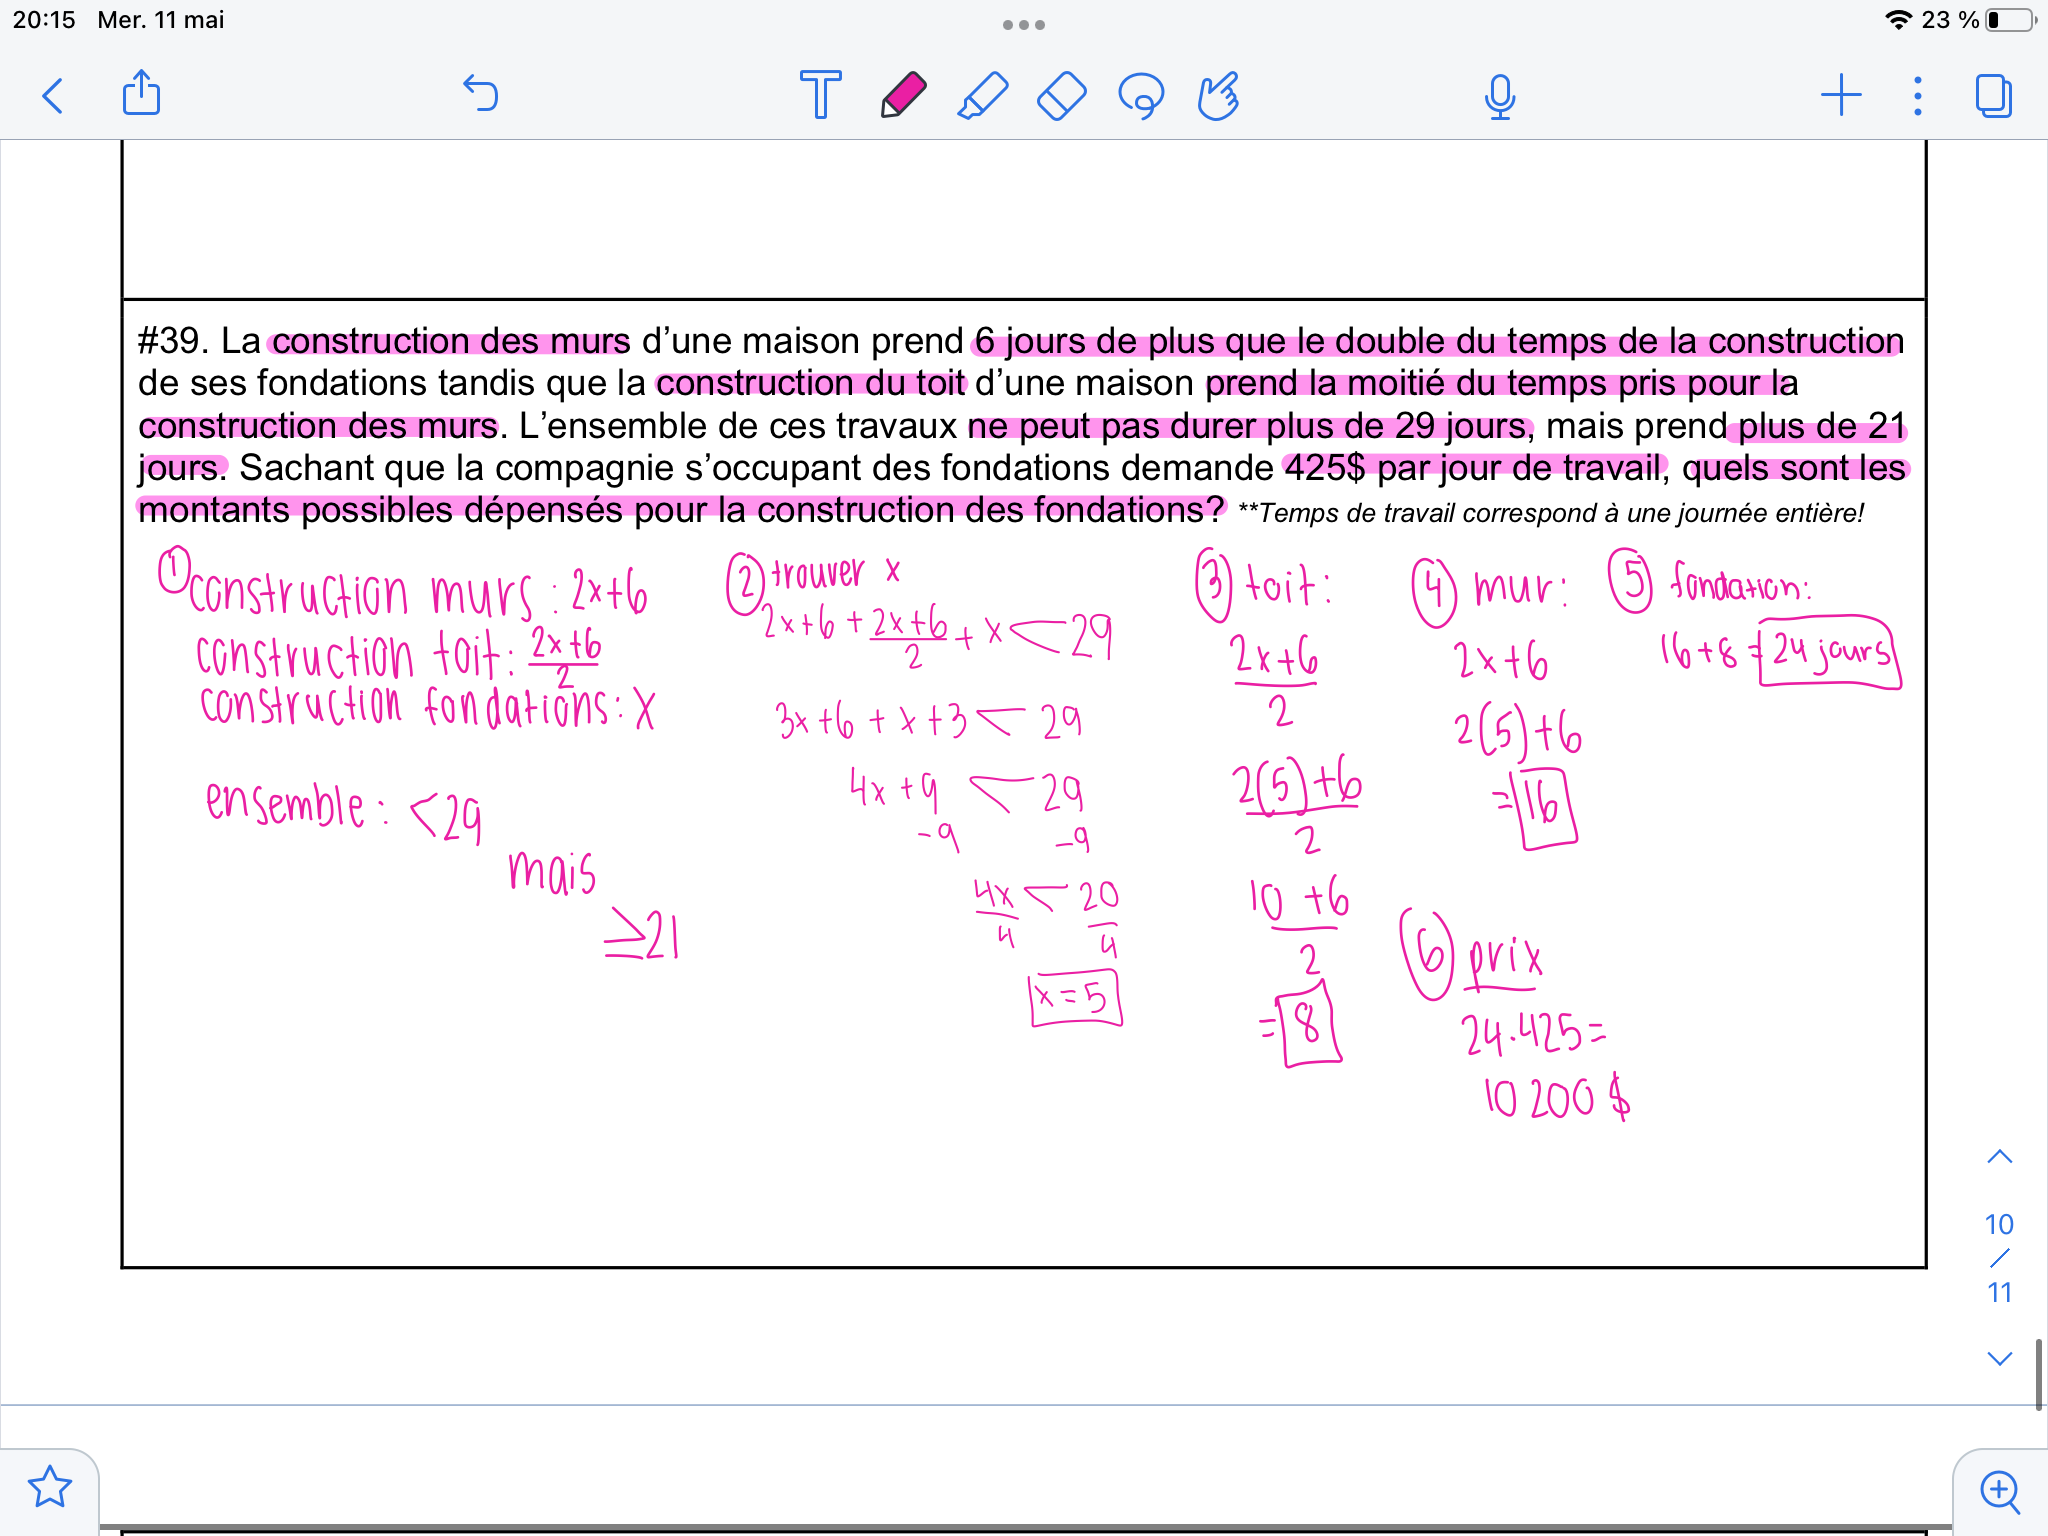 20:15 Mer. 11 mai
23 %
#39. La construction des murs d’une maison prend 6 jours de plus que le double du temps de la construction
de ses fondations tandis que la construction du toit d’une maison prend la moitié du temps pris pour la
construction des murs. L’ensemble de ces travaux ne peut pas durer plus de 29 jours, mais prend plus de 21
jours. Sachant que la compagnie s’occupant des fondations demande 425$ par jour de travail, quels sont les
montants possibles dépensés pour la construction des fondations? **Temps de travail correspond à une journée entière!
① construction murs : 2x+6
construction toit : (2x+6)/2
construction fondations : x
ensemble : <29
mais
≥21
② trouver x
2x+6 + (2x+6)/2 + x < 29
3x+6 + x+3 < 29
4x+9 < 29
-9 -9
4x/4 < 20/4
x = 5
③ toit :
(2x+6)/2
(2(5)+6)/2
(10+6)/2
= 8
④ mur :
2x+6
2(5)+6
= 16
⑤ fondation :
16+8 = 24 jours
⑥ prix
24·425=
10 200 $
10
/
11